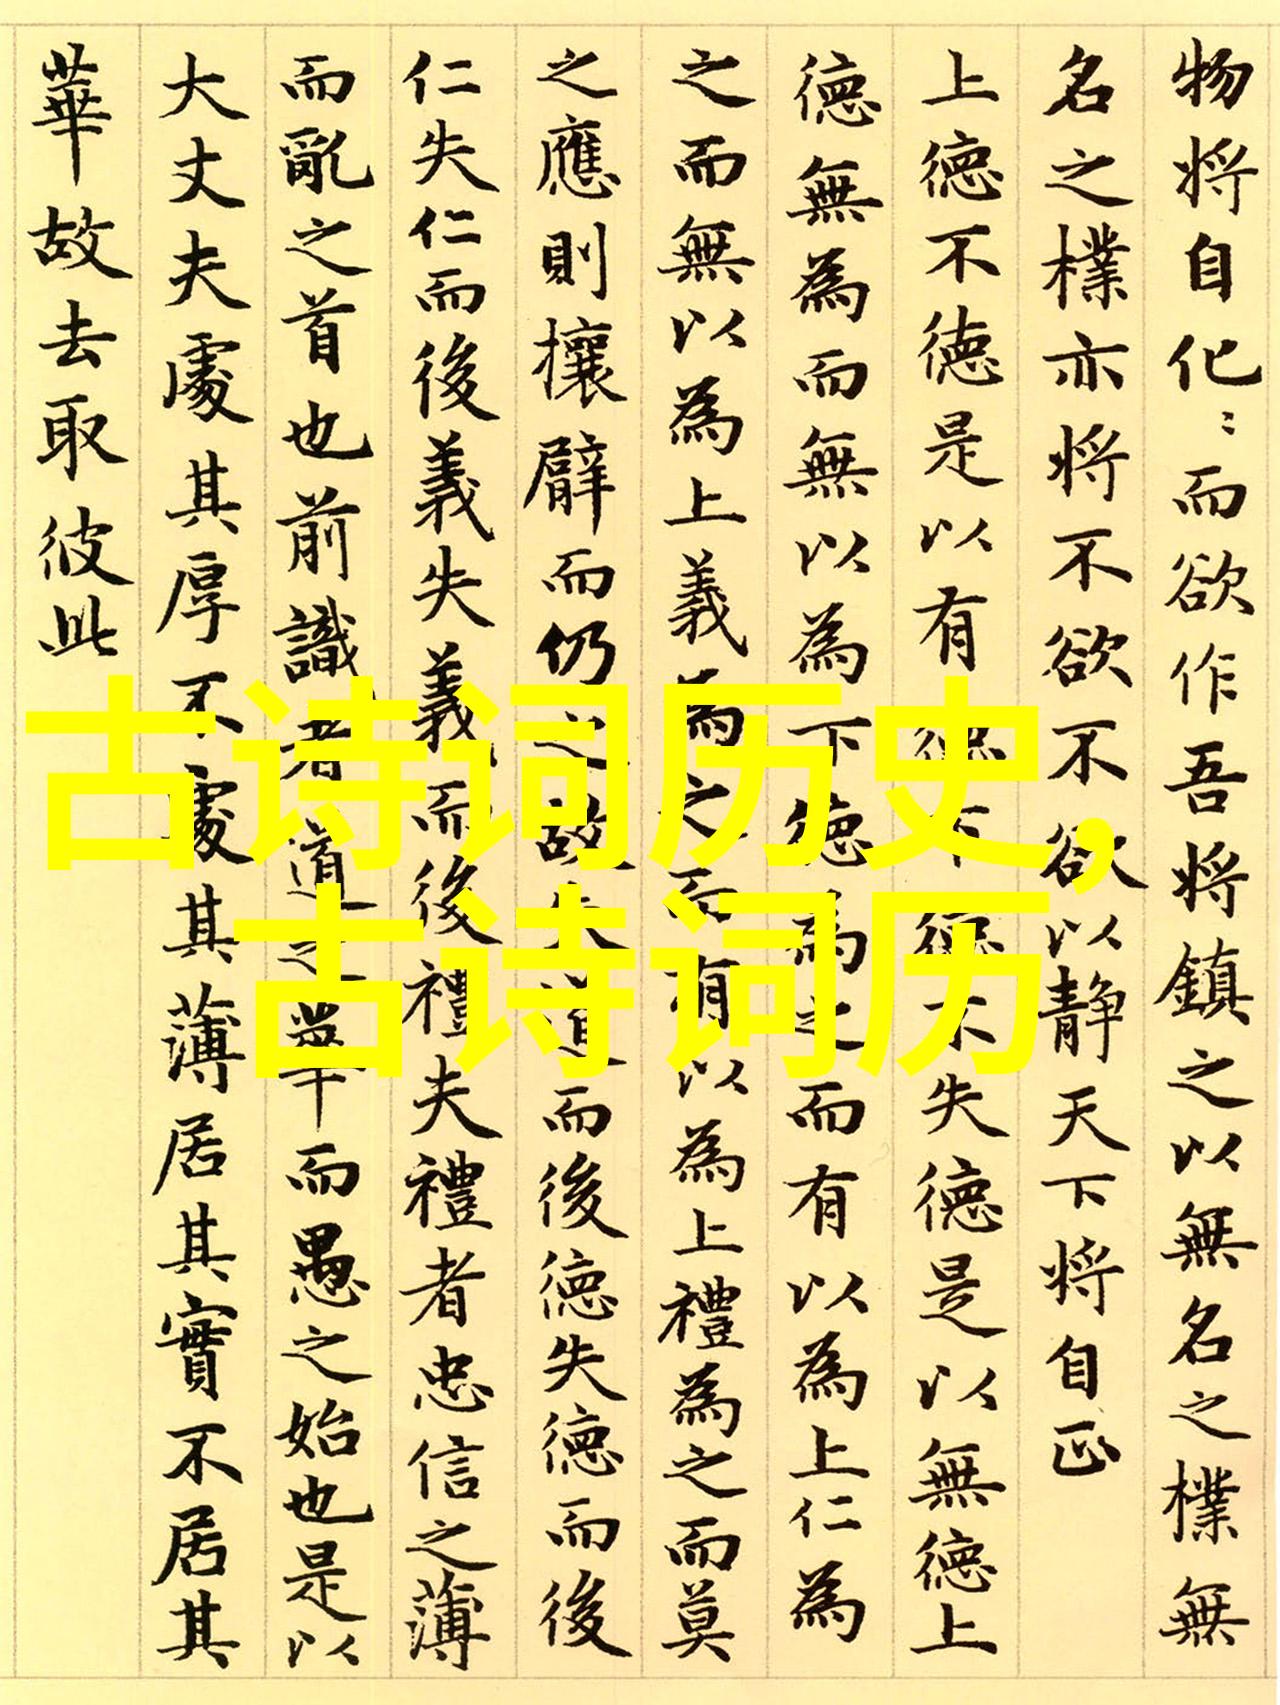 物将自化〻而欲作吾将鎮之以無名之樸無
名之樸亦将不欲不欲以靜天下将自正
上德不德是以有德下德不失德是以無德上
德無為而無以為下德為之而有以為上仁為
之而無以為上義為之而有以為上禮為之而莫
之應則攘臂而仍之故失道而後德失德而後
仁失仁而後義失義而後禮夫禮者忠信之薄
而亂之首也前識者道之華而愚之始也是以
大丈夫處其厚不處其薄居其實不居其
華故去取彼此
古诗词历史,
古诗词历